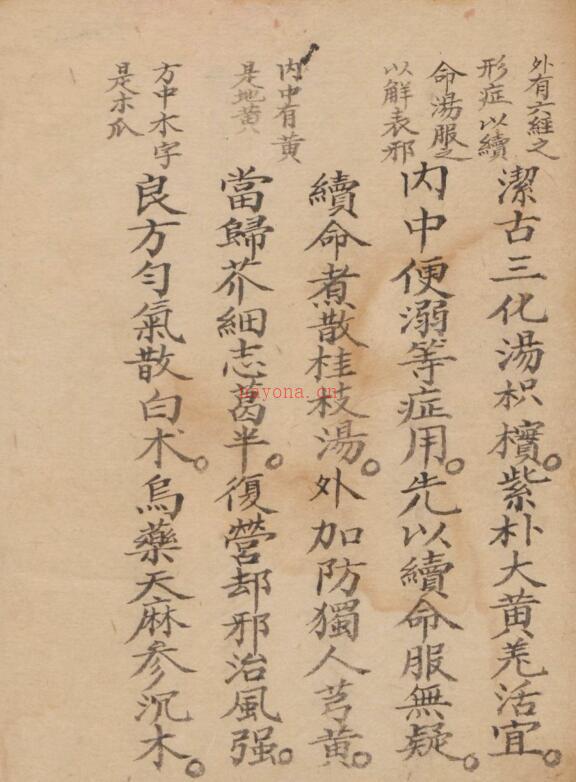 外有六經之
形症以續
命湯服之
以解表邪
潔古三化湯枳檳。紫朴大黄羌活宜。
内中便溺等症用。先以續命服無疑。
内中有黄
是地黄
續命煮散桂枝湯。外加防獨人芎黄。
當歸芥細志葛半。復營却邪治風强。
方中木字
是木瓜
良方匀氣散白术。烏藥天麻参沉木。
nayona.cn